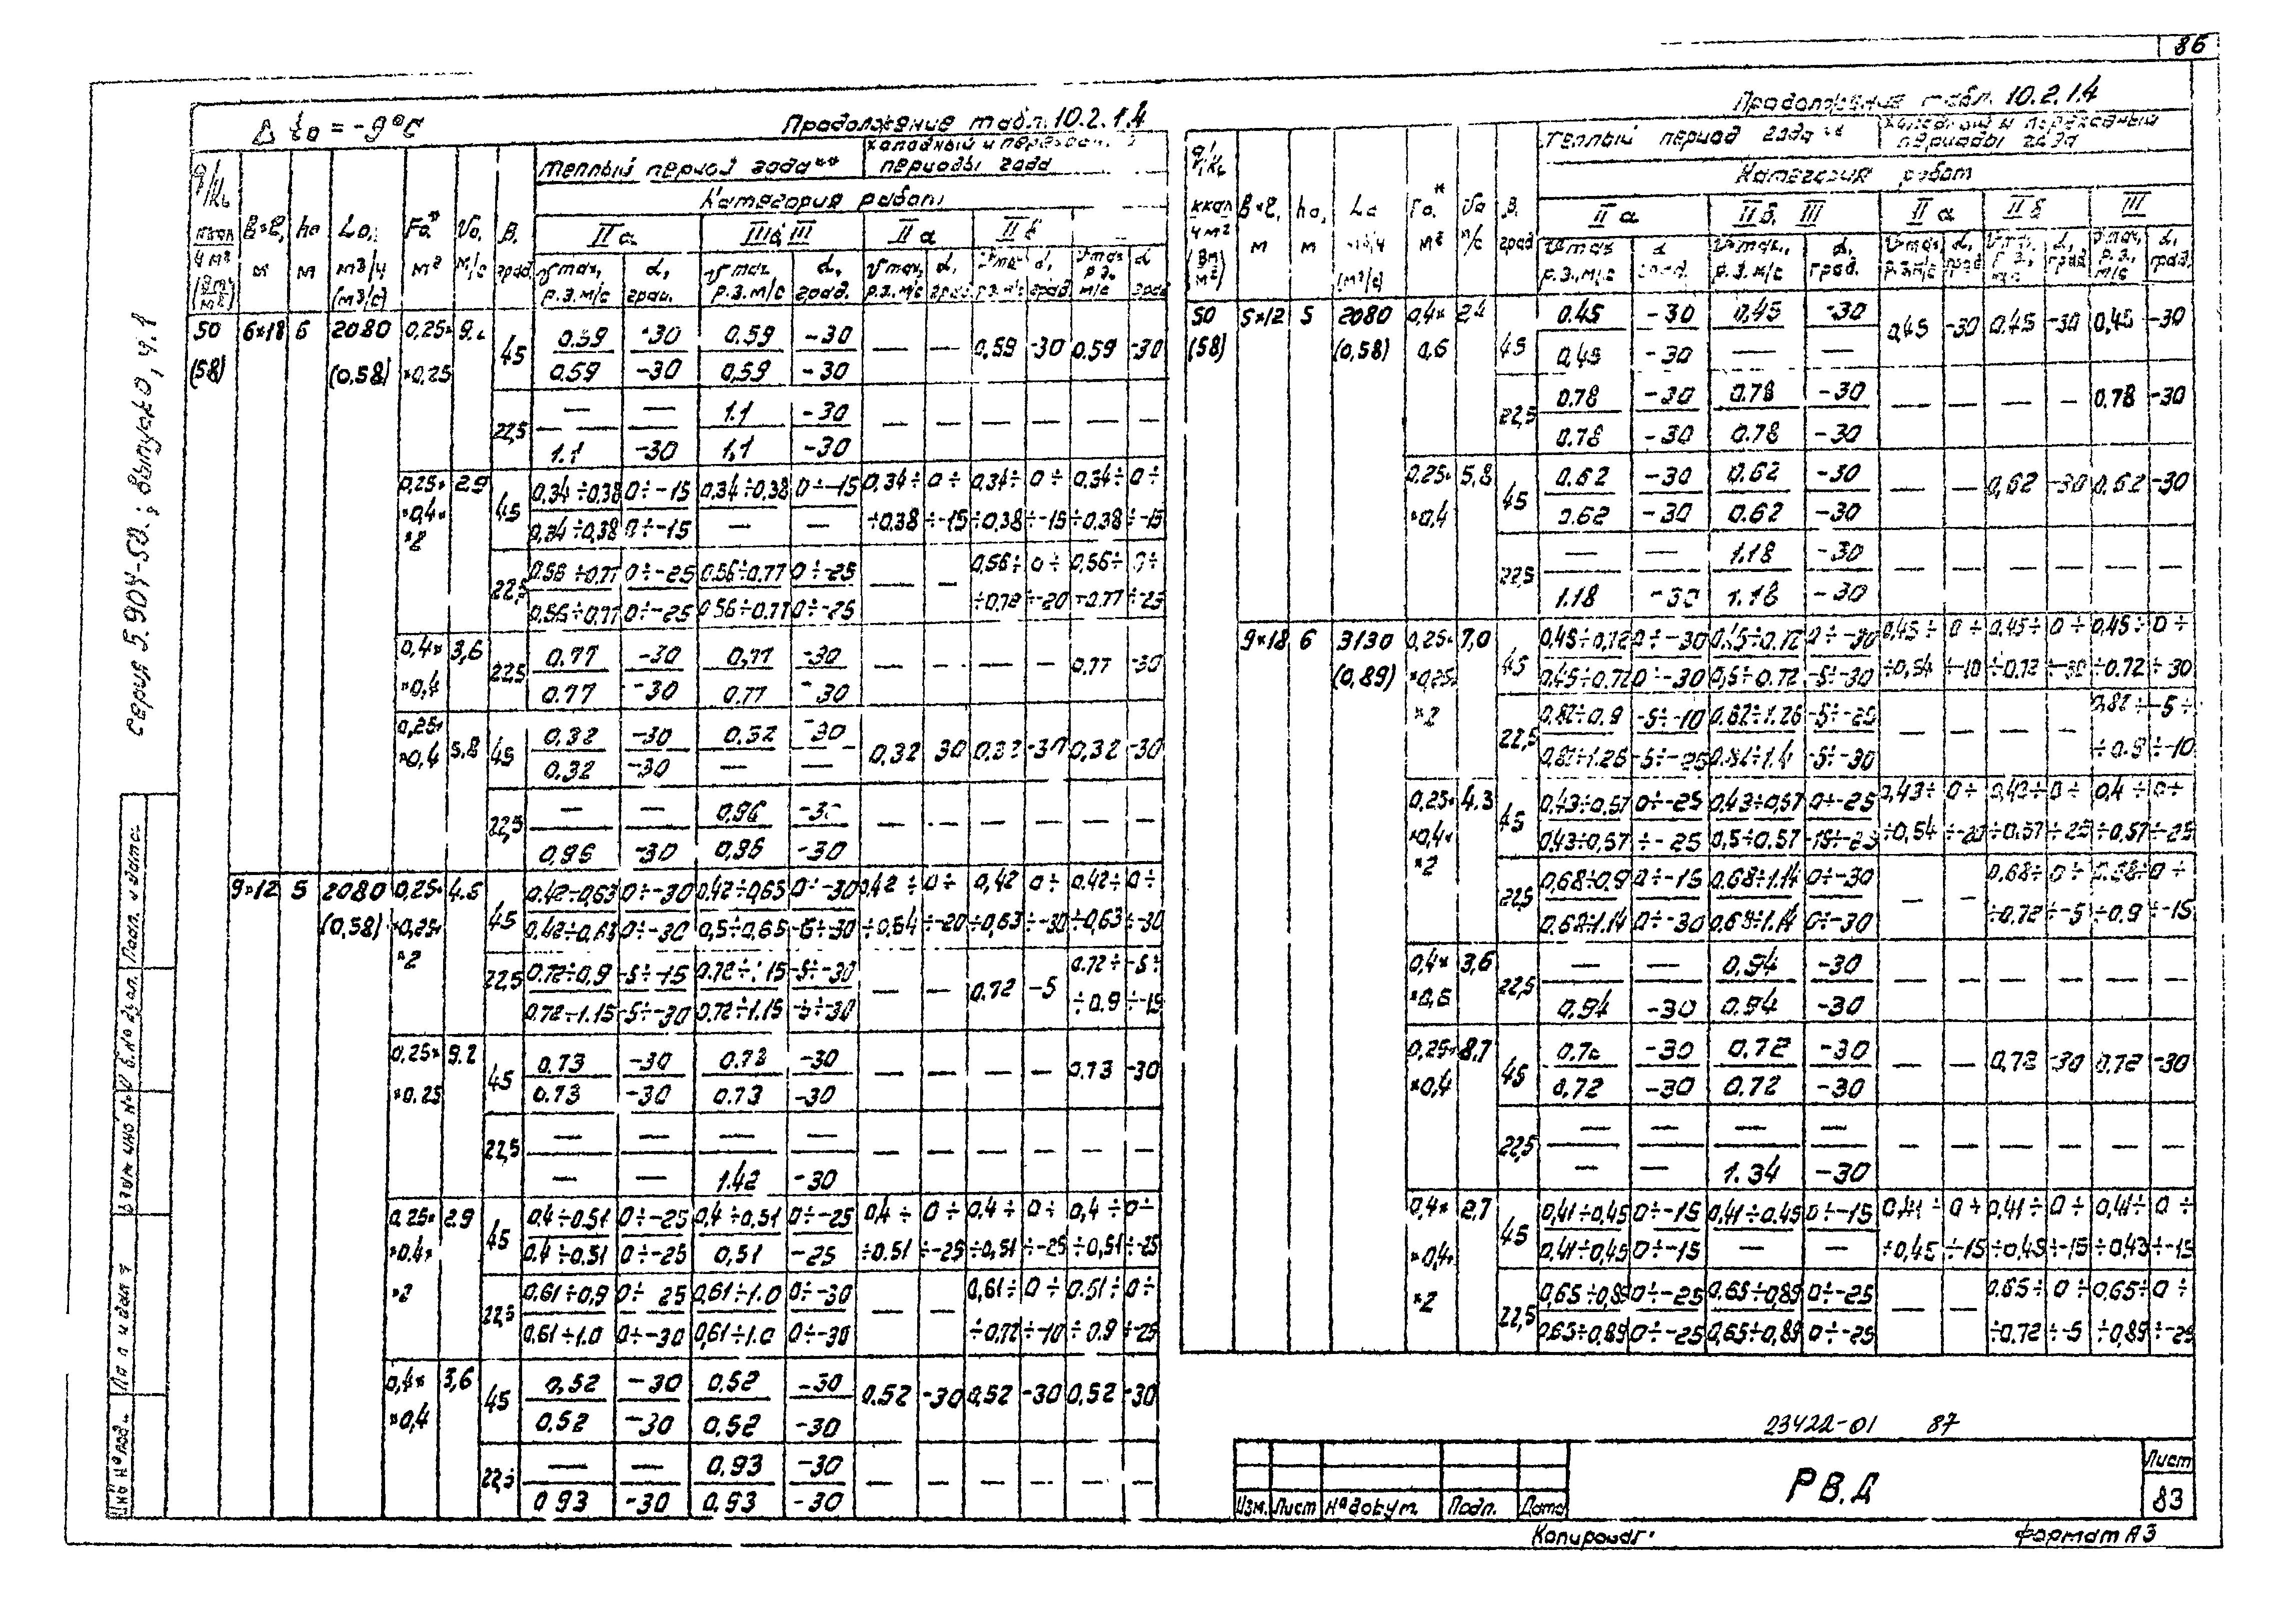 86
серия 5.904-50.; выпуск 0, ч. 1
Δ to = -9°C
Продолжение табл. 10.2.1.4
q/кв ккал ч м² (Вт/м²)
В×ℓ, м
ho м
Lo, м³/ч (м³/с)
Fo* м²
Vo, м/с
β, град
теплый период года**
холодный и переходный периоды года
Категория работ
II а
II б
Vmax, р.з. м/с
α, град.
50 (58) 6×18 6 2080 (0,58) 0,25×0,25
45 0.59 -30 0.59 -30 — — 0,59 -30 0.59 -30
0.59 -30 0,59 -30
22,5 — — 1.1 -30 — — — — — —
1.1 -30 1,1 -30
0,25×0,4×2 2.9
45 0,34÷0,38 0÷-15 0,34÷0,38 0÷-15 0,34÷ 0÷ 0,34÷ 0÷ 0,34÷ 0÷
0,34÷0,38 0÷-15 — — ÷0.38 ÷-15 ÷0,38 ÷-15 ÷0.38 ÷-15
22,5 0.56÷0,77 0÷-25 0.56÷0.77 0÷-25 — — 0,56÷ 0÷ 0,56÷ 0÷
0,56÷0,77 0÷-25 0.56÷0.77 0÷-25 ÷0,72 ÷-20 ÷0.77 ÷-25
0,4×0,4 3,6
22,5 0.77 -30 0,77 -30 — — — — 0,77 -30
0.77 -30 0.77 -30
0,25×0,4 5,8
45 0.32 -30 0.32 -30 0,32 30 0,32 -30 0,32 -30
0.32 -30 — —
22,5 — — 0,96 -30 — — — — — —
0,96 -30 0,96 -30
9×12 5 2080 (0,58) 0,25×0,25×2
45 0.42÷0,63 0÷-30 0,42÷0,63 0÷-30 0,42÷ 0÷ 0,42 0÷ 0.42÷ 0÷
0,42÷0,63 0÷-30 0,5÷0,65 -5÷-30 ÷0,54 ÷-20 ÷0,63 ÷-30 ÷0,63 ÷-30
22,5 0.72÷0,9 -5÷-15 0.72÷1.15 -5÷-30 — — 0.72 -5 0.72÷ -5÷
0.72÷1.15 -5÷-30 0.72÷1.15 -5÷-30 ÷0.9 ÷-15
0,25×0.25 9.2
45 0.73 -30 0.73 -30 — — — — 0.73 -30
0.73 -30 0.73 -30
22,5 — — — — — — — — — —
— — 1.42 -30
0,25×0.4×2 2.9
45 0.4÷0.51 0÷-25 0,4÷0,51 0÷-25 0,4÷ 0÷ 0,4÷ 0÷ 0,4÷ 0÷
0.4÷0.51 0÷-25 0,51 -25 ÷0.51 ÷-25 ÷0,51 ÷-25 ÷0,51 ÷-25
22,5 0,61÷0,9 0÷ 25 0,61÷1.0 0÷-30 — — 0,61÷ 0÷ 0.61÷ 0÷
0,61÷1.0 0÷-30 0,61÷1.0 0÷-30 ÷0,72 ÷-10 ÷0.9 ÷-25
0,4×0,4 3,6
45 0,52 -30 0.52 -30 0.52 -30 0,52 -30 0,52 -30
0.52 -30 0.52 -30
22,5 — — 0,93 -30 — — — — — —
0 93 -30 0,93 -30
Продолжение табл. 10.2.1.4
q/кв ккал ч м² (Вт/м²)
В×ℓ, м
ho, м
Lo (м³/с)
Fo.* м²
Vo м/с
β. град
теплый период года**
холодный и переходный периоды года
Категория работ
II а
II б, III
II а
II б
III
Vmax р.з., м/с
α, град.
50 (58) 5×12 5 2080 (0,58) 0,4×0,6 2.4
45 0.45 -30 0,45 -30 0,45 -30 0,45 -30 0,45 -30
0,45 -30 — —
22,5 0.78 -30 0.78 -30 — — — — 0.78 -30
0.78 -30 0.78 -30
0,25×0,4 5,8
45 0.62 -30 0.62 -30 — — 0,62 -30 0.62 -30
0.62 -30 0.62 -30
22,5 — — 1.18 -30 — — — — — —
1.18 -30 1.18 -30
9×18 6 3130 (0,89) 0,25×0,25×2 7,0
45 0,45÷0,72 0÷-30 0,45÷0.72 0÷-30 0,45÷ 0÷ 0,45÷ 0÷ 0,45÷ 0÷
0,45÷0.72 0÷-30 0,5÷0.72 -5÷-30 ÷0,54 ÷-10 ÷0.72 ÷-30 ÷0.72 ÷-30
22,5 0,82÷0.9 -5÷-10 0.82÷1.26 -5÷-25 — — — — 0.82÷ -5÷
0,82÷1.26 -5÷-25 0.82÷1.4 -5÷-30 ÷0.9 ÷-10
0,25×0,4×2 4.3
45 0,43÷0,57 0÷-25 0,43÷0,57 0÷-25 0,43÷ 0÷ 0,43÷ 0÷ 0,4÷ 0÷
0.43÷0,57 ÷-25 0,5÷0.57 -15÷-25 ÷0,54 ÷-20 ÷0,57 ÷25 ÷0,57 ÷-25
22,5 0,68÷0.9 0÷-15 0.68÷1.14 0÷-30 — — 0.68÷ 0÷ 0.68÷ 0÷
0.68÷1.14 0÷-30 0,68÷1.14 0÷-30 ÷0.72 ÷-5 ÷0.9 ÷-15
0,4×0,6 3,6
22,5 — — 0.94 -30 — — — — — —
0.94 -30 0.94 -30
0,25×0,4 8.7
45 0.72 -30 0.72 -30 — — 0,72 -30 0.72 -30
0.72 -30 0.72 -30
22,5 — — — — — — — — — —
— — 1.34 -30
0,4×0,4×2 2,7
45 0,41÷0,45 0÷-15 0,41÷0.45 0÷-15 0,41÷ 0÷ 0,41÷ 0÷ 0,41÷ 0÷
0,41÷0,45 0÷-15 — — ÷0,45 ÷-15 ÷0,45 ÷-15 ÷0,43 ÷-15
22,5 0,65÷0,89 0÷-25 0.65÷0,89 0÷-25 — — 0.65÷ 0÷ 0,65÷ 0÷
0,65÷0,89 0÷-25 0,65÷0,89 0÷-25 ÷0.72 ÷-5 ÷0,89 ÷-25
23422-01 87
Изм. Лист № докум. Подп. Дата
РВ.Д
Лист
83
Копировал:
формат А3
Инв № подл. Подп и дата Взам инв № Инв.№ дубл. Подп. и дата